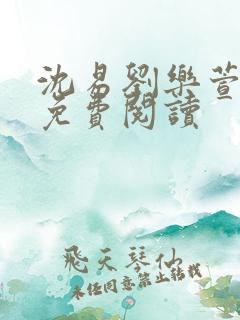 沈昜劉樂萱
免費閱讀
飛天琴仙
未经同意禁止转载